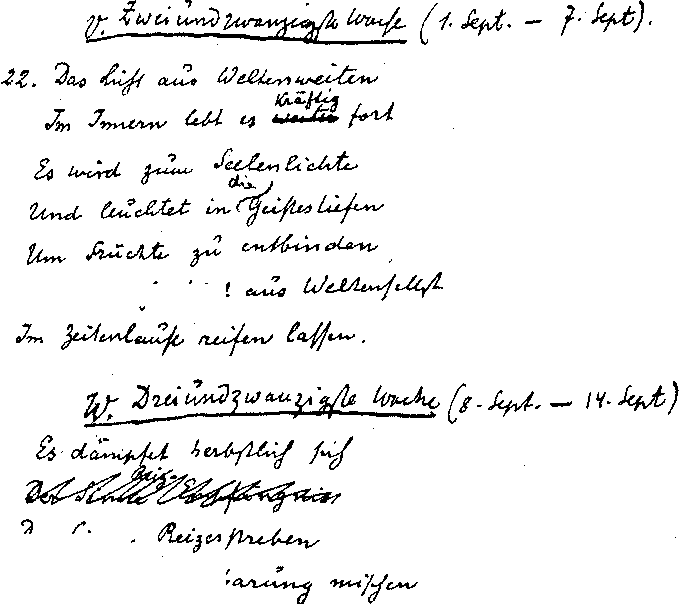 V. Zweiundzwanzigste Woche (1. Sept. – 7. Sept).
22. Das Licht aus Weltenweiten
kräftig
Im Innern lebt es weiter fort
Es wird zum Seelenlichte
die
Und leuchtet in Geistestiefen
Um Früchte zu entbinden
aus Weltenselbst
Im Zeitenlaufe reifen lassen.
W. Dreiundzwanzigste Woche (8. Sept. – 14. Sept)
Es dämpfet herbstlich sich
Der
Reizesstreben
arung mischen